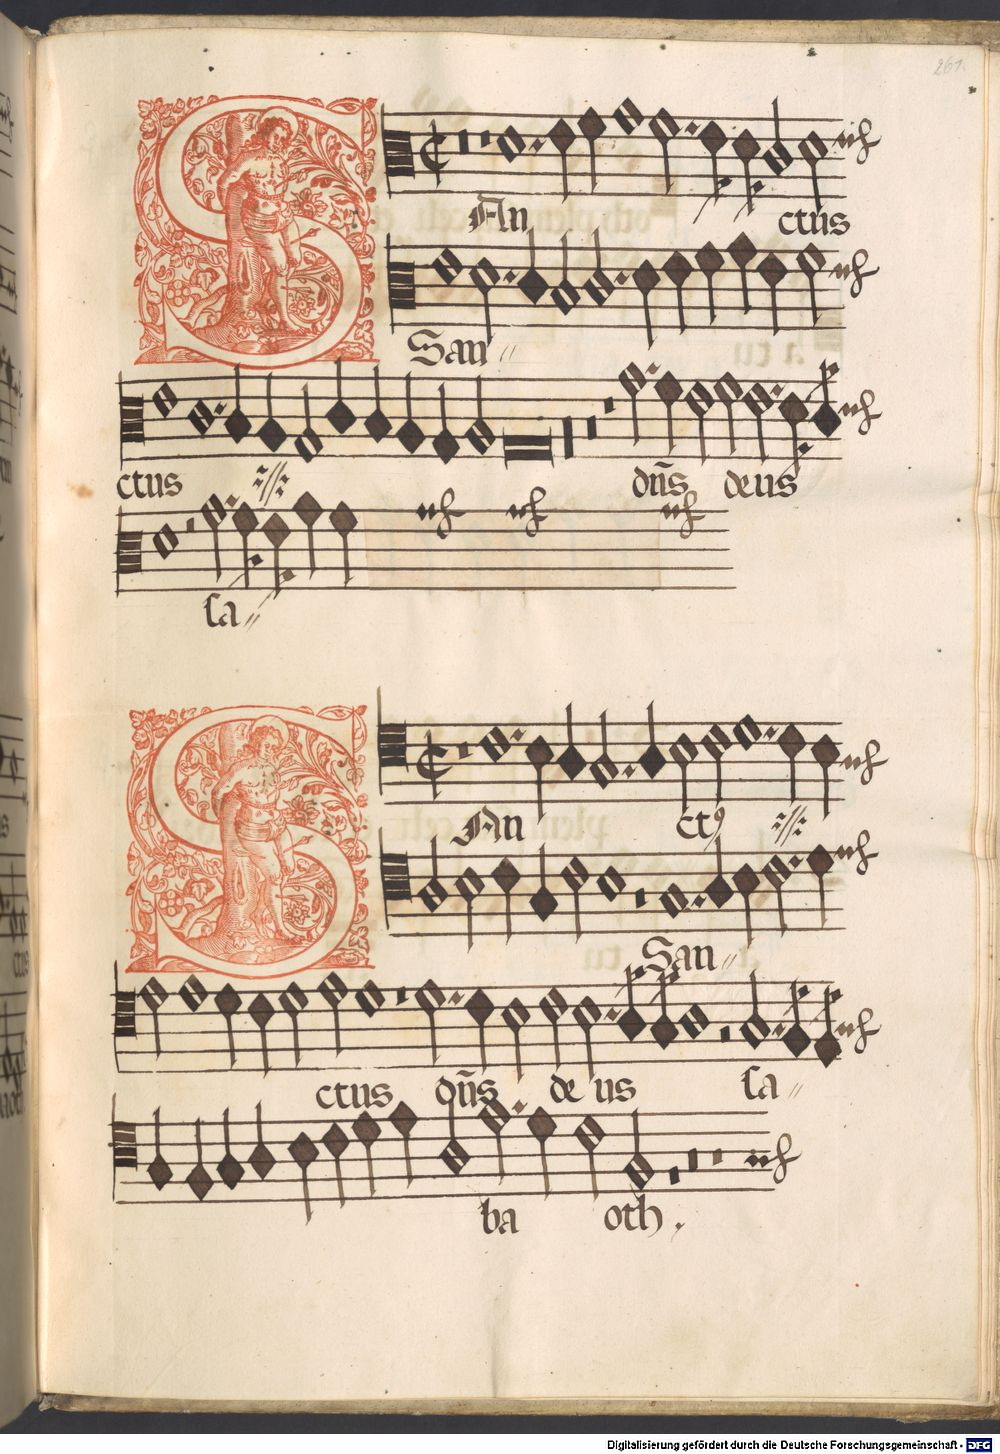 261.
SAn ctus
San〃
ctus ·//· dn̄s deus
sa〃
SAn ctꝰ ·//·
San〃
ctus dn̄s de us sa〃
ba oth.
Digitalisierung gefördert durch die Deutsche Forschungsgemeinschaft - DFG